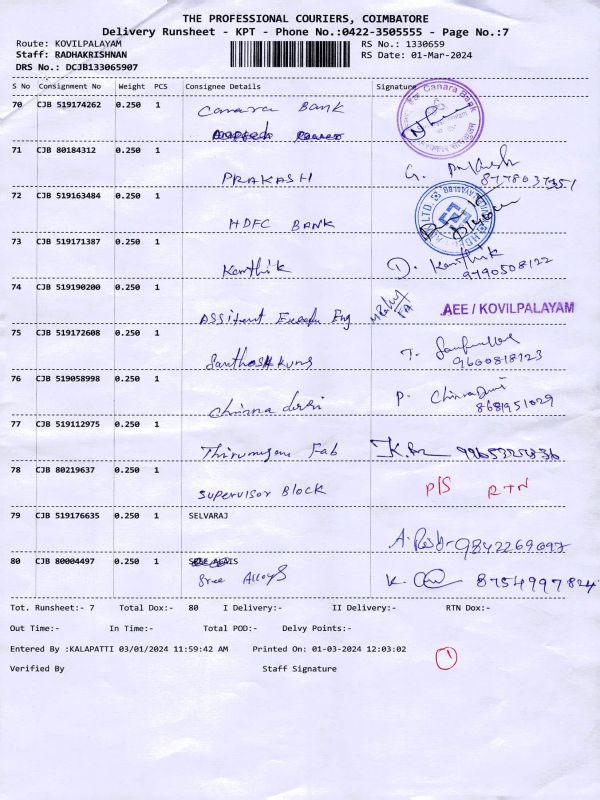 THE PROFESSIONAL COURIERS, COIMBATORE
Delivery Runsheet - KPT - Phone No.:0422-3505555 - Page No.:7
Route: KOVILPALAYAM RS No.: 1330659
Staff: RADHAKRISHNAN RS Date: 01-Mar-2024
DRS No.: DCJB133065907
S No Consignment No Weight PCS Consignee Details Signature
70 CJB 519174262 0.250 1 Canara Bank
For Canara Bank
71 CJB 80184312 0.250 1 PRAKASH G.
72 CJB 519163484 0.250 1 HDFC BANK
73 CJB 519171387 0.250 1 Karthik D. Karthik 9790508122
74 CJB 519190200 0.250 1 Assitent Eng AEE / KOVILPALAYAM
75 CJB 519172608 0.250 1 Santhosh T. 9600818123
76 CJB 519058998 0.250 1 Chinna devi P. 8681951029
77 CJB 519112975 0.250 1 Thirumugan Fab
78 CJB 80219637 0.250 1 Supervisor Block P/S RTN
79 CJB 519176635 0.250 1 SELVARAJ A. 9842269697
80 CJB 80004497 0.250 1 Sree Alloys K. 8754997824
Tot. Runsheet:- 7 Total Dox:- 80 I Delivery:- II Delivery:- RTN Dox:-
Out Time:- In Time:- Total POD:- Delvy Points:-
Entered By :KALAPATTI 03/01/2024 11:59:42 AM Printed On: 01-03-2024 12:03:02
1
Verified By Staff Signature